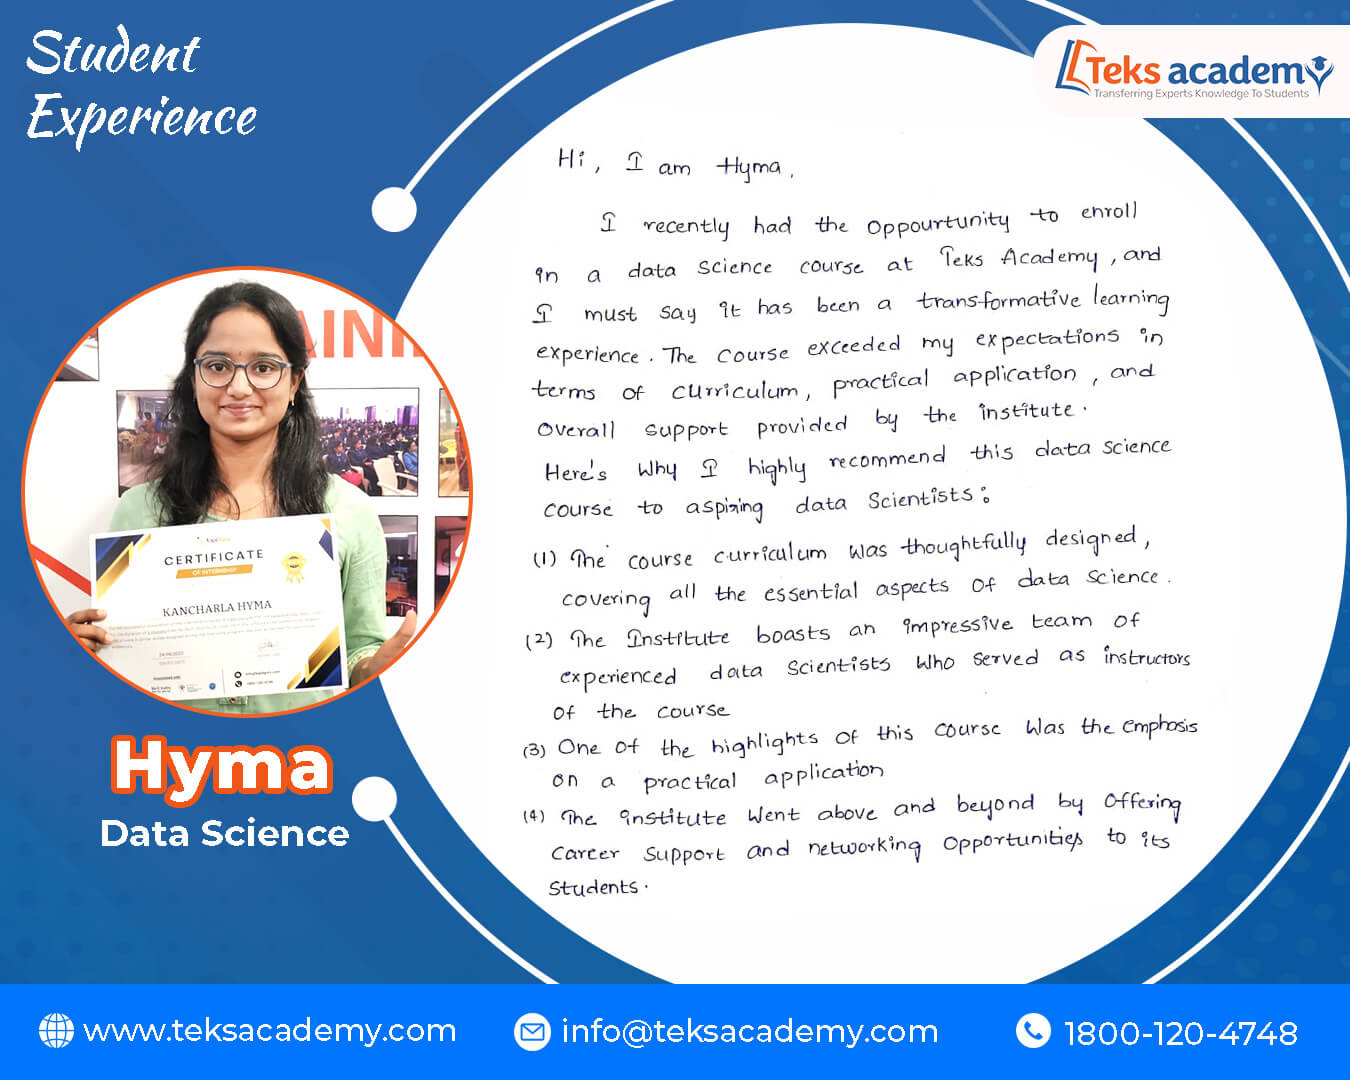 Student
Experience
Teks academy
Transferring Experts Knowledge To Students
Hi, I am Hyma,
I recently had the oppourtunity to enroll
in a data science course at Teks Academy, and
I must say it has been a transformative learning
experience. The course exceeded my expectations in
terms of curriculum, practical application, and
Overall support provided by the institute.
Here's why I highly recommend this data science
course to aspiring data scientists:
(1) The course curriculum was thoughtfully designed,
covering all the essential aspects of data science.
(2) The Institute boasts an impressive team of
experienced data scientists who served as instructors
of the course
(3) One of the highlights of this course was the emphosis
on a practical application
(4) The institute went above and beyond by offering
career support and networking opportunities to its
students.
AINI
CERTIFICATE
OF INTERNSHIP
KANCHARLA HYMA
Hyma
Data Science
www.teksacademy.com
info@teksacademy.com
1800-120-4748